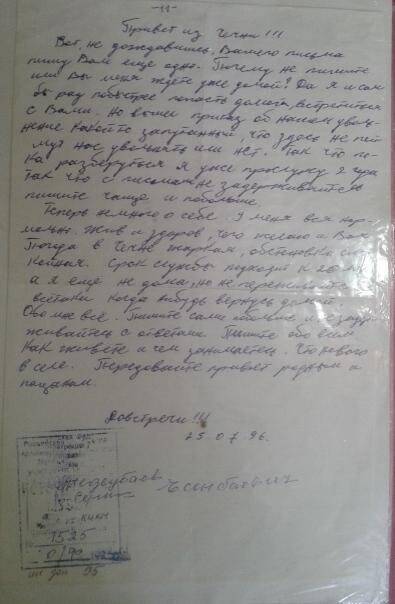 -11-
Привет из Чечни!!!
Вот, не дождавшись, Вашего письма
пишу Вам ещё одно. Почему не пишите
или Вы меня ждёте уже домой? Да я и сам
бы рад побыстрее попасть домой, встретится
с Вами. Но вышел приказ об нашем уволь-
нение какой то запутанный, что здесь не пой
мут нас увольнять или нет. Так что по-
ка разберуться я уже прослужу 2 года
Так что с письмами не задерживайтесь
пишите чаще и побольше.
Теперь немного о себе. У меня всё нор-
мально. Жив и здоров, чего желаю и Вам
Погода в Чечне жаркая, обстановка спо
койная. Срок службы подходит к
а я ещё не дома, но не переживайте
всётаки когда нибудь вернусь домой.
Обо мне всё. Пишите сами и не задер
живайтесь с ответами. Пишите обо всём
как живёте и чем занимаетесь. Что нового
в селе. Передавайте привет родным и
пацанам.
Довстречи!!!
25.07.96.
Есенбаевич
1525
95